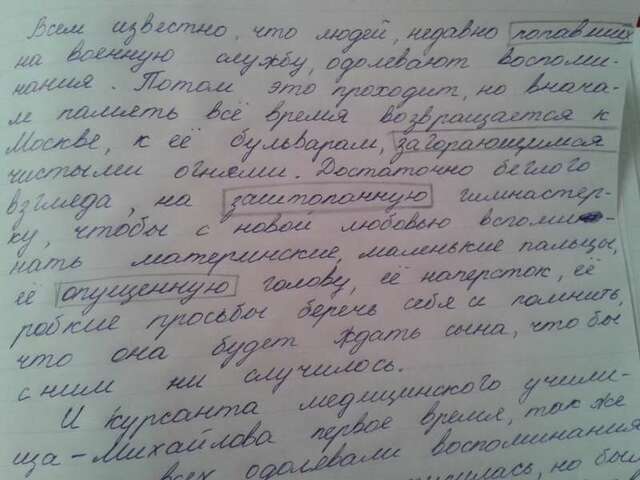 Всем известно, что людей, недавно попавших
на военную службу, одолевают воспоми-
нания. Потом это проходит, но внача-
л память всё время возвращается к
Москве, к её бульварам, загорающимся
чистыми огнями. Достаточно беглого
взгляда, на заштопанную гимнастер-
ку, чтобы с новой любовью вспоми-
нать материнские, маленькие пальцы,
её опущенную голову, её наперсток, её
робкие просьбы беречь себя и помнить,
что она будет ждать сына, что бы
с ним ни случилось.
И курсанта медицинского учили-
ща - Михайлова первое время, так же
всех одолевали воспоминания
но был